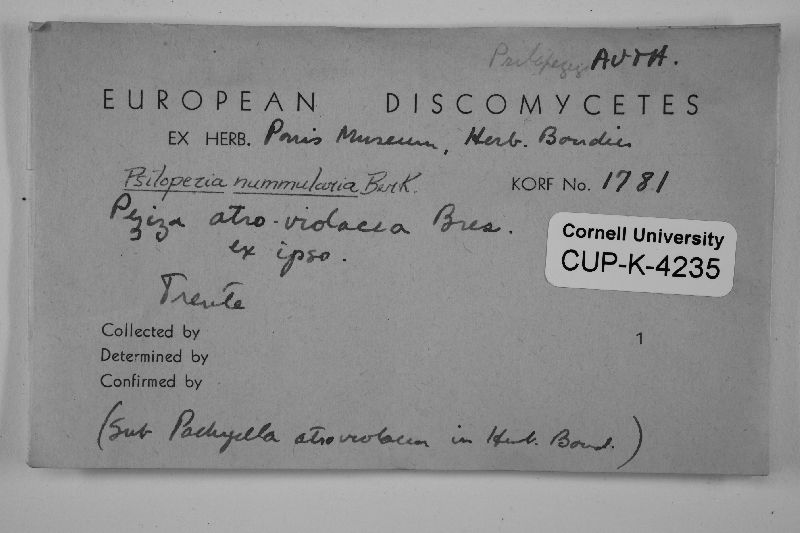 Psilopezia AUTH.
EUROPEAN DISCOMYCETES
EX HERB. Paris Museum, Herb. Boudier
Psilopezia nummularia Berk.
KORF No. 1781
Peziza atro-violacea Bres.
ex ipso.
Cornell University
CUP-K-4235
Trente
Collected by
1
Determined by
Confirmed by
(Sub Pachyella atroviolacea in Herb. Boud.)